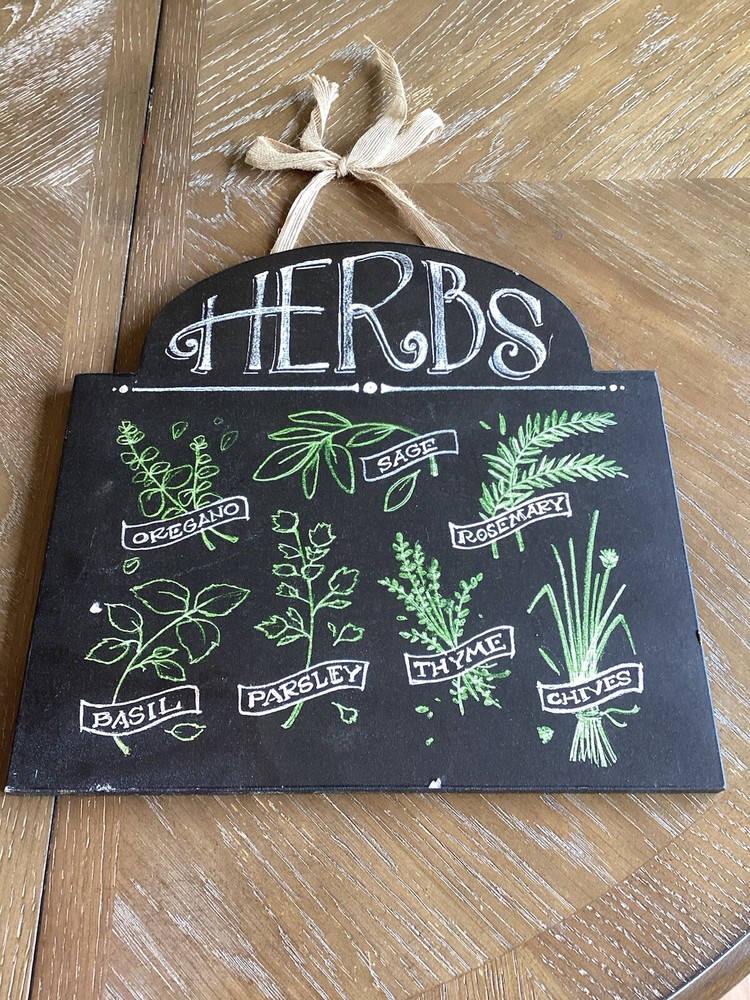 HERBS
OREGANO
SAGE
ROSEMARY
BASIL
PARSLEY
THYME
CHIVES